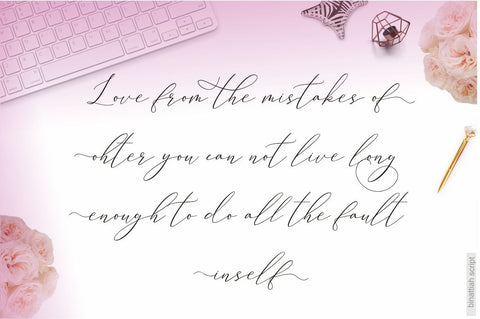 Love from the mistakes of
ohter you can not live long
enough to do all the fault
inself
binattiah script